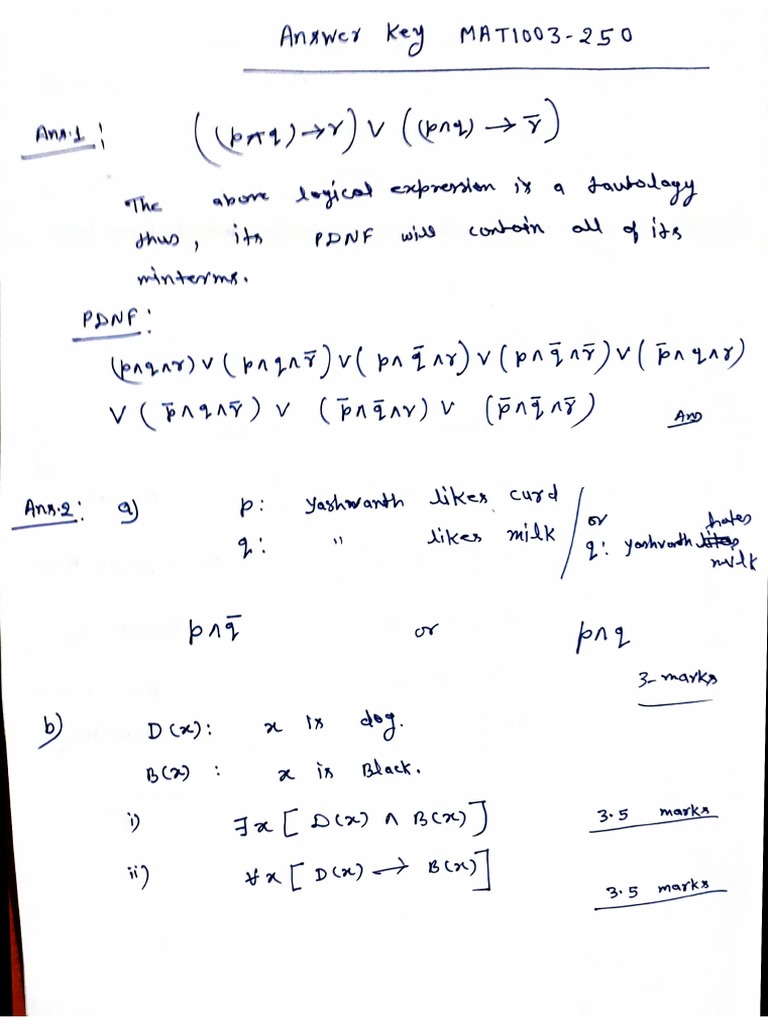 Answer key MAT1003-250
Ans.1: ((p∧q)→r) ∨ ((p∧q) → r̄)
The above logical expression is a tautology
thus, its PDNF will contain all of its
minterms.
PDNF:
(p∧q∧r) ∨ (p∧q∧r̄) ∨ (p∧q̄∧r) ∨ (p∧q̄∧r̄) ∨ (p̄∧q∧r)
∨ (p̄∧q∧r̄) ∨ (p̄∧q̄∧r) ∨ (p̄∧q̄∧r̄) Ans
Ans.2: a) p: Yashwanth likes curd
q: " likes milk / or q: yashvanth hates milk
p∧q̄ or p∧q
3-marks
b) D(x): x is dog.
B(x) : x is Black.
i) ∃x[D(x) ∧ B(x)] 3.5 marks
ii) ∀x[D(x) → B(x)] 3.5 marks